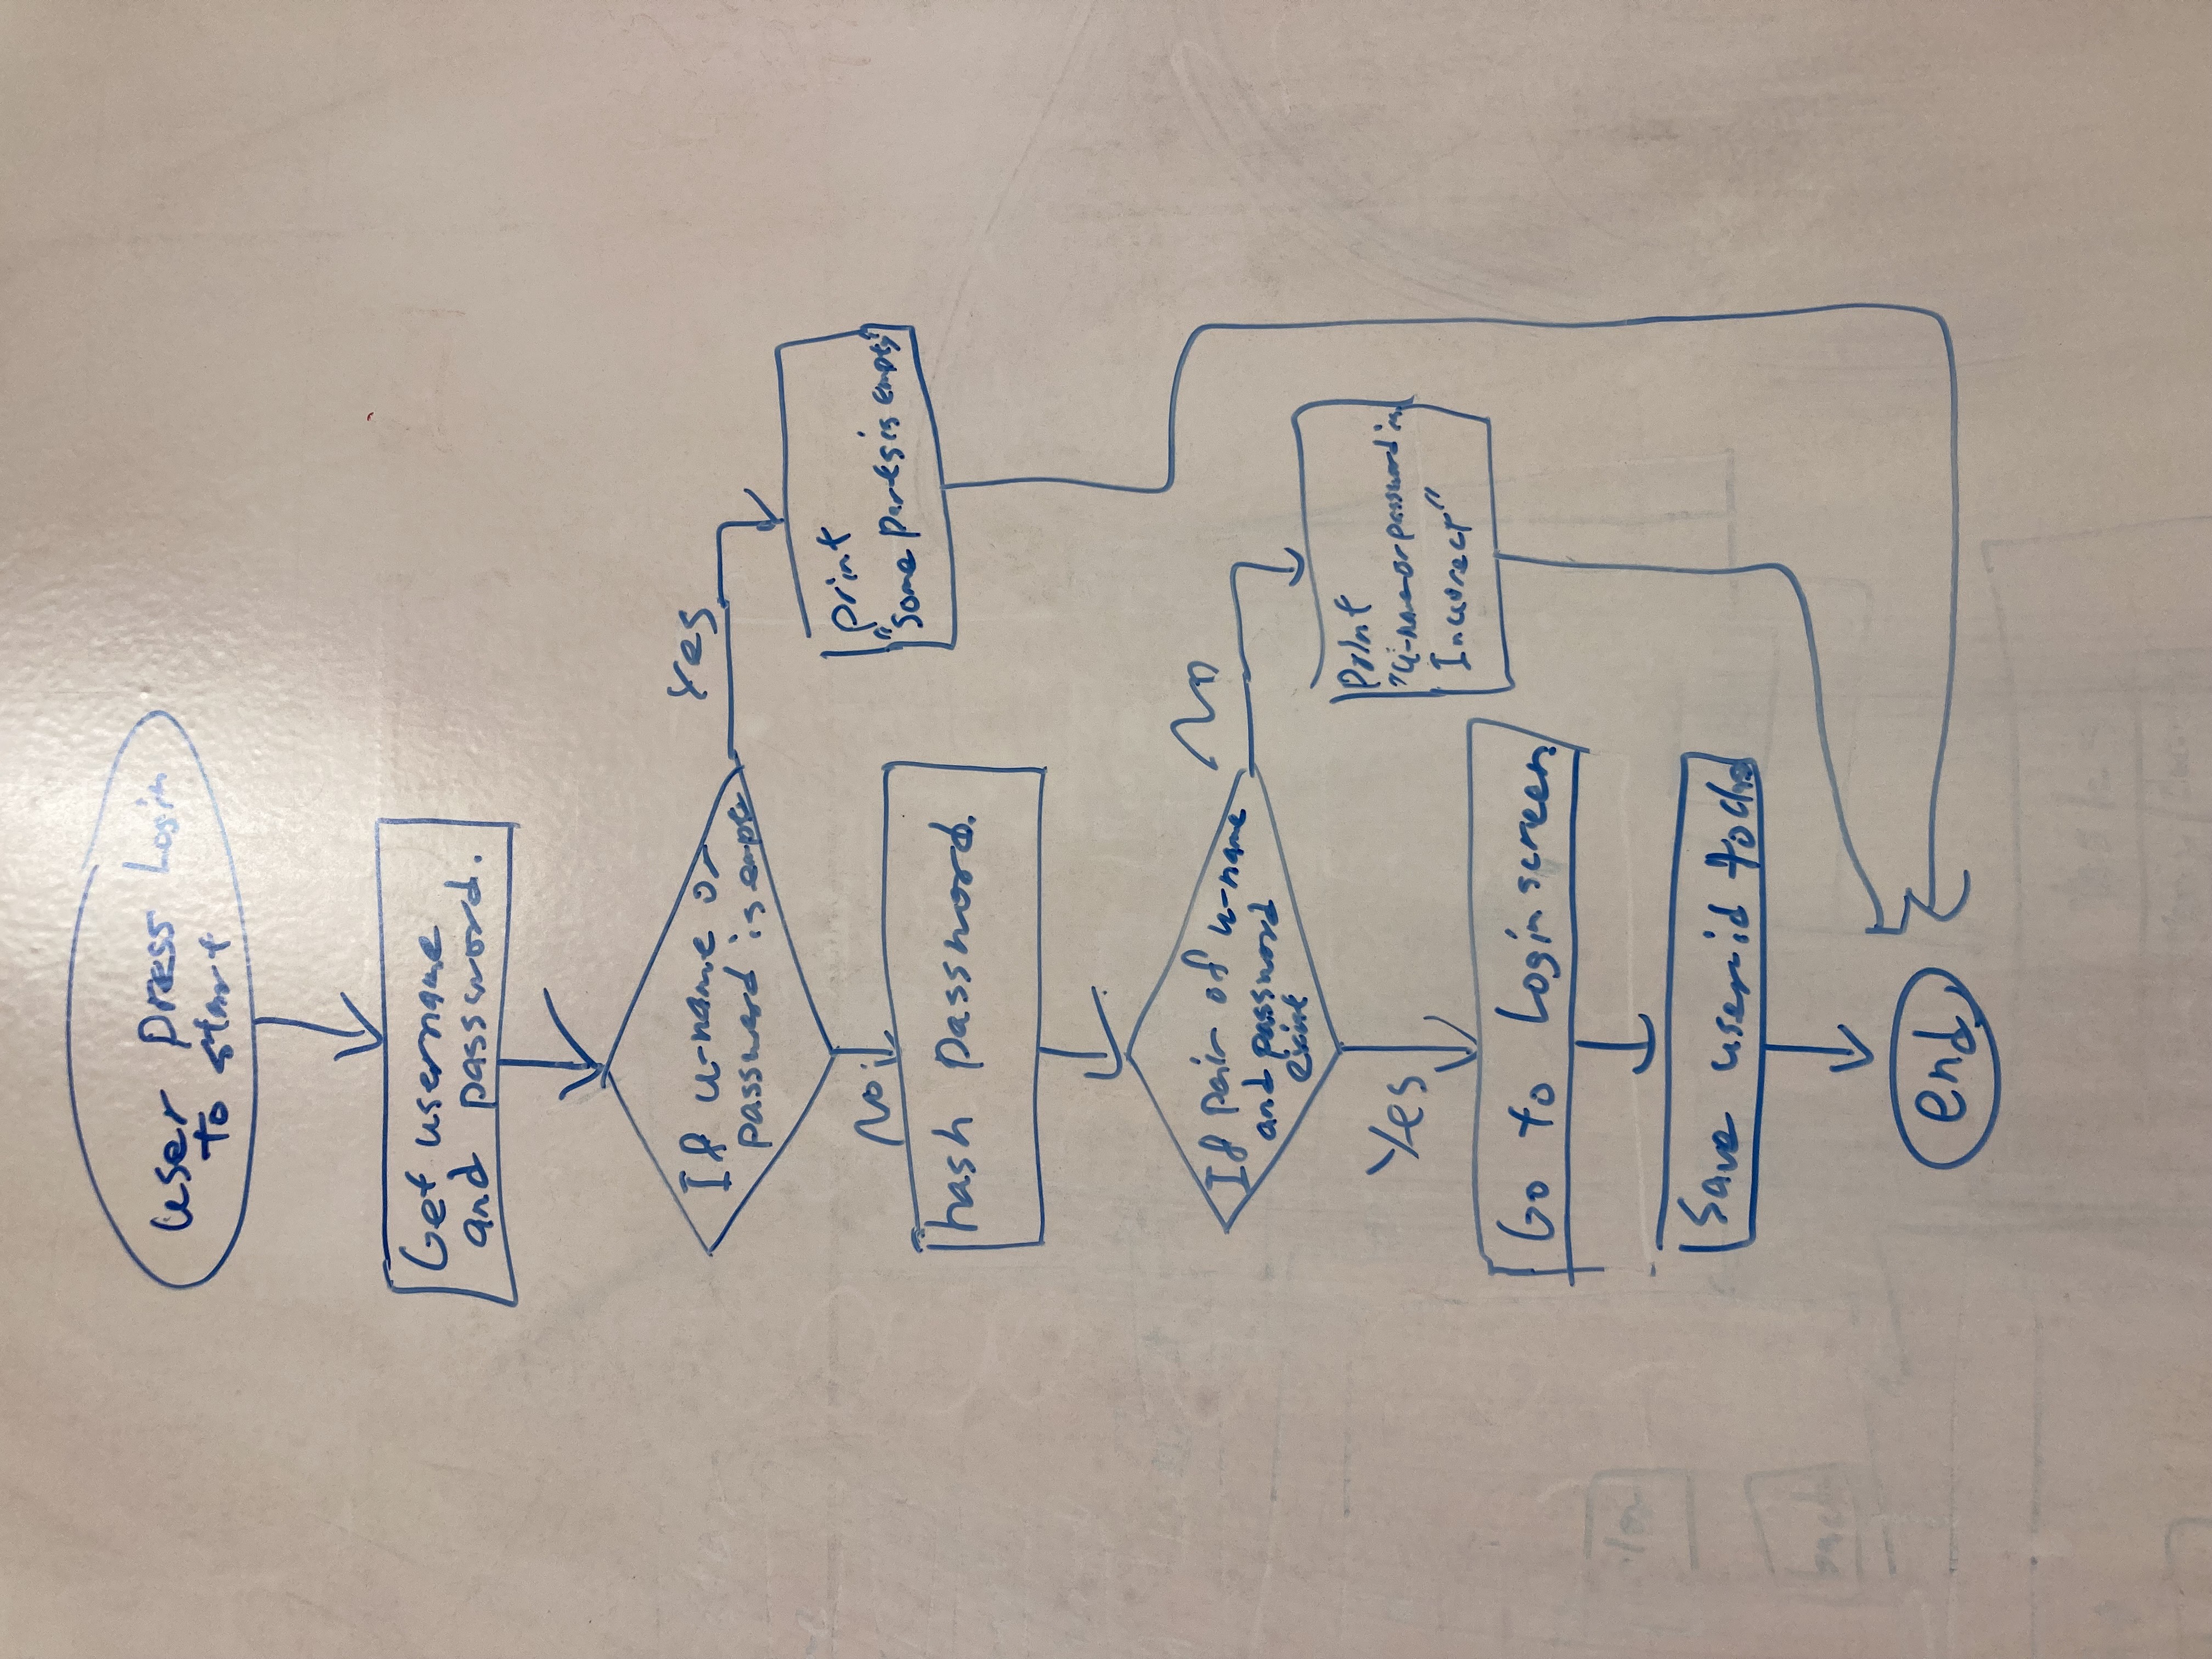 User press Login
to start
Get username
and password.
If u-name or
password is empty
Yes
print
"Some parts is empty"
No
hash password.
If pair of u-name
and password
exist
No
Print
"u-name or password is
Incorrect"
Yes
Go to Login screen.
Save user id to
end